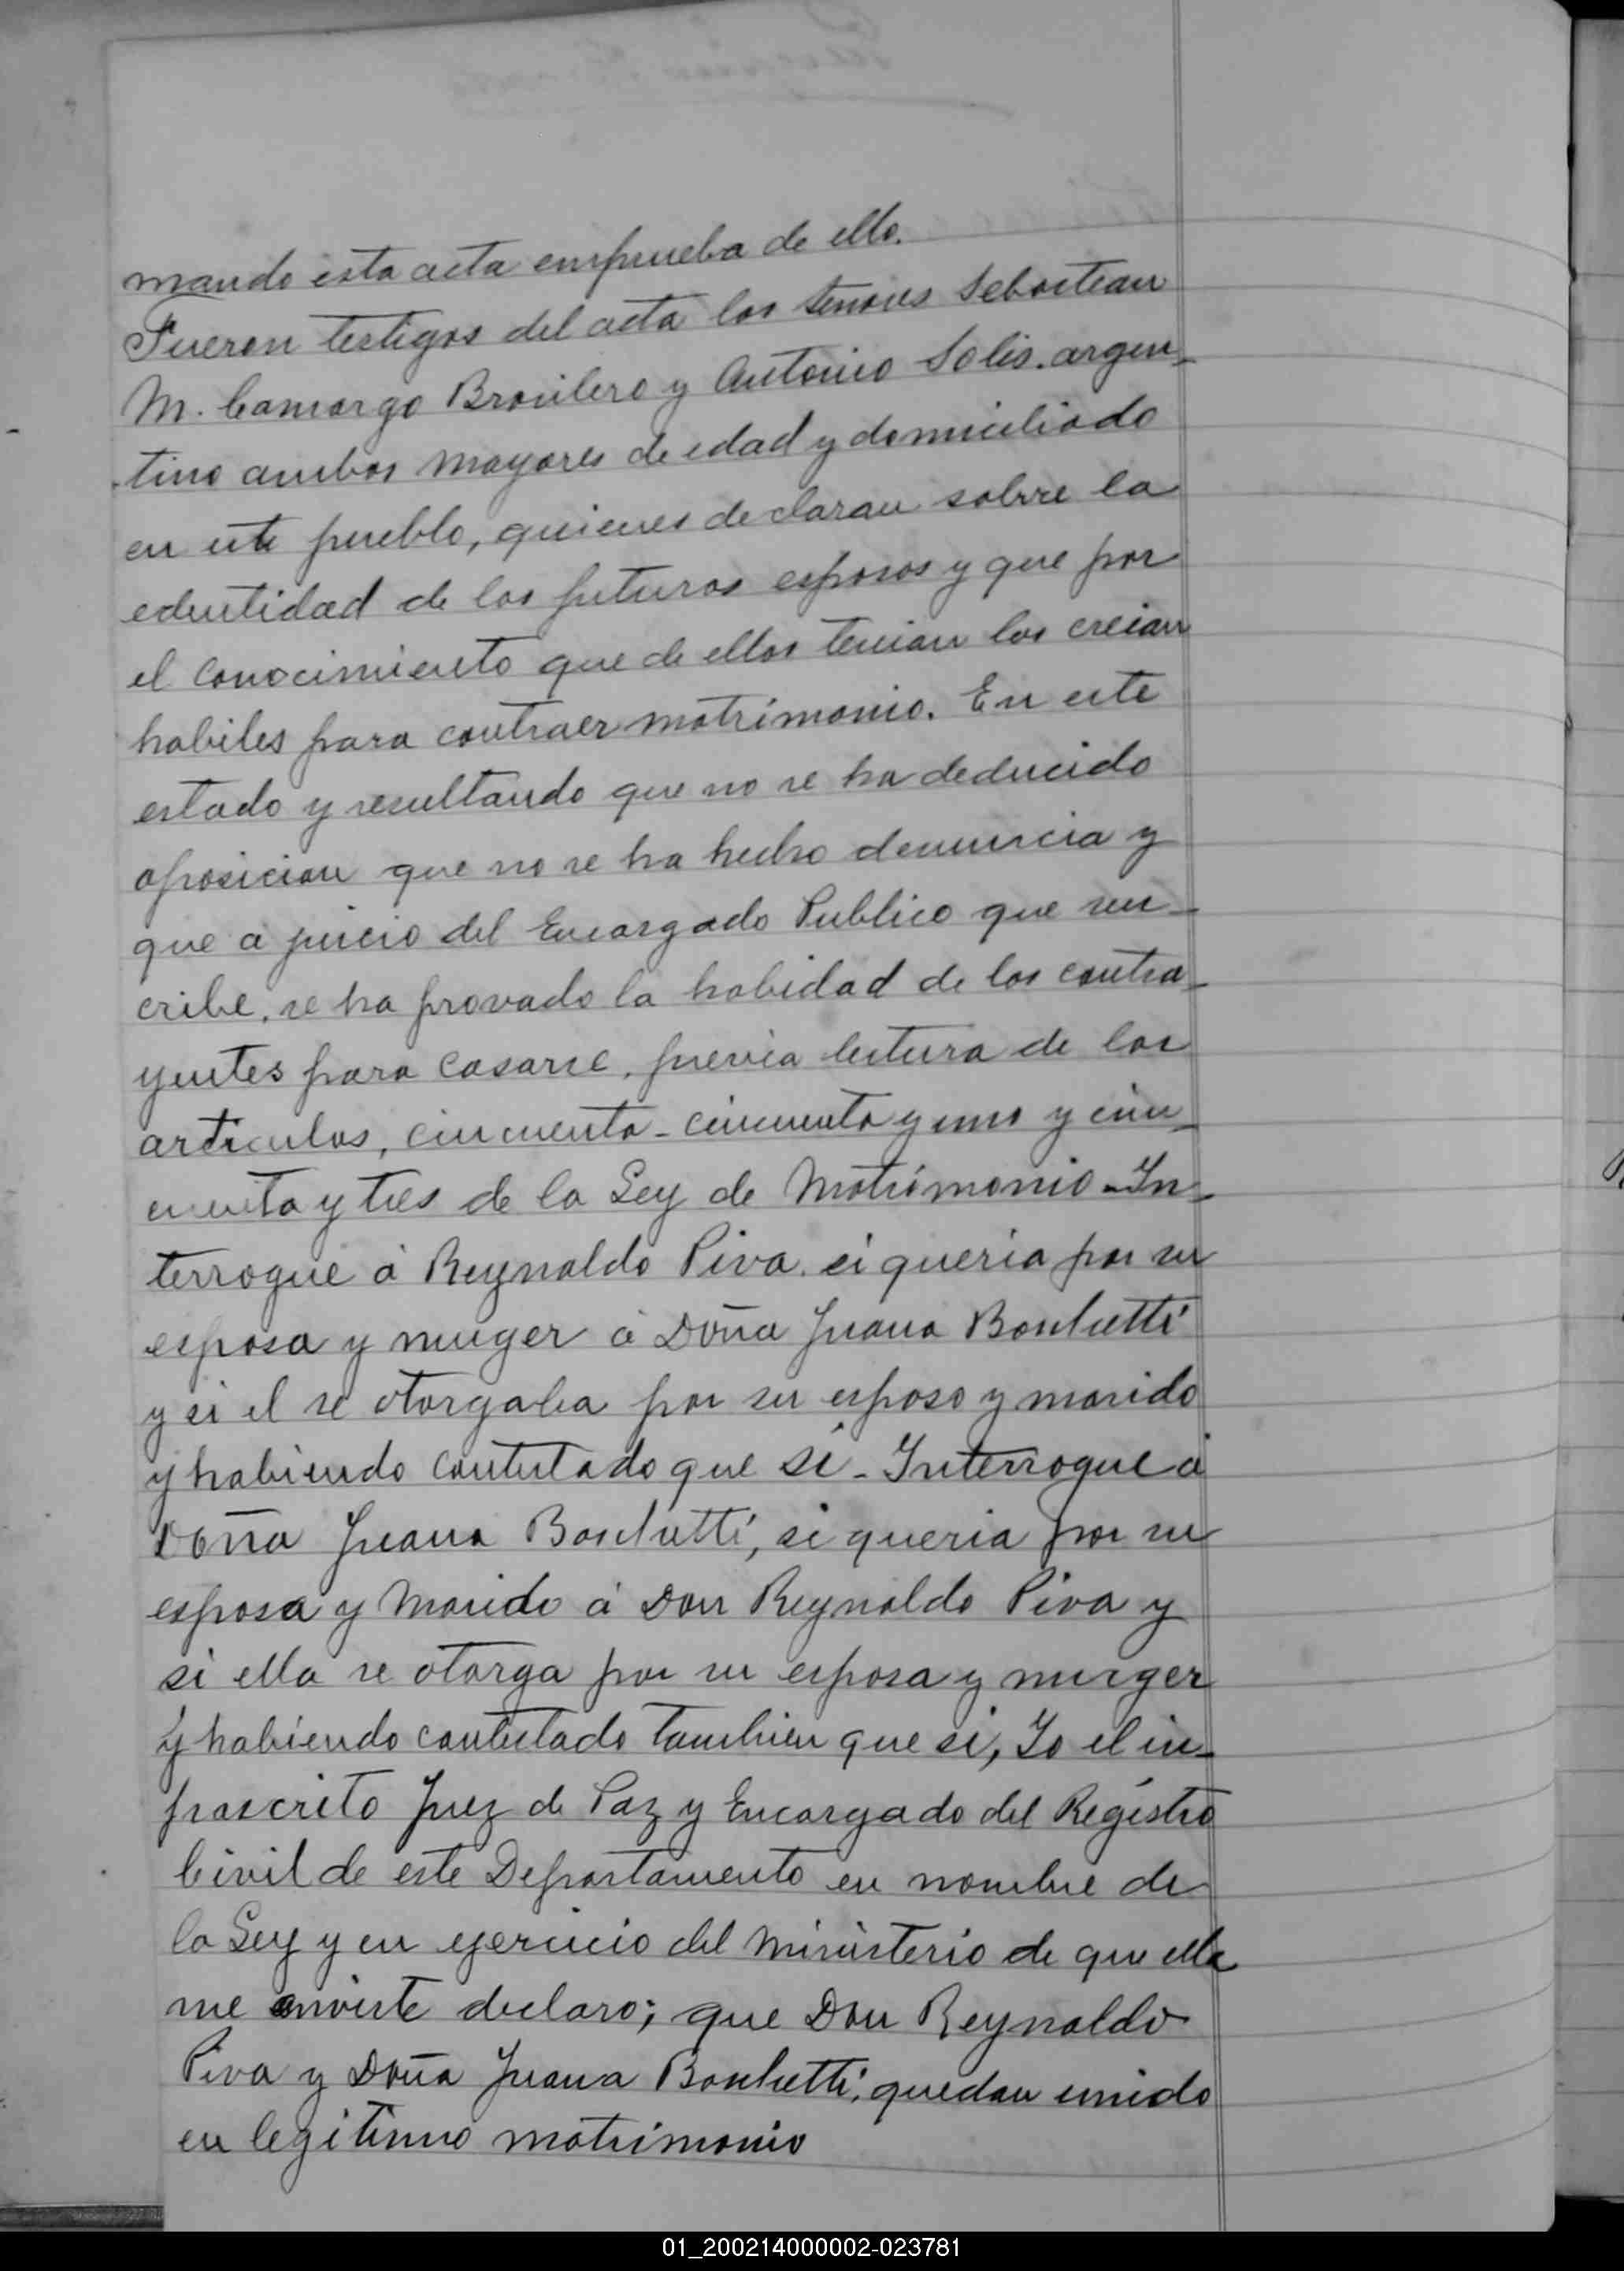 mando esta acta enprueba de ello.
Fueron testigos del acta los señores Sebastian
M. Camargo Brasilero y Antonio Solis. argen-
tino ambos mayores de edad y domiciliado
en este pueblo, quienes declaran sobre la
edentidad de los futuros esposos y que por
el conocimiento que de ellos tenian los creian
habiles para contraer matrimonio. En este
estado y resultando que no se ha deducido
oposicion que no se ha hecho denuncia y
que a juicio del Encargado Publico que sus-
cribe, se ha provado la habidad de los contra-
yentes para casarse, previa lectura de los
articulos, cincuenta - cincuenta y uno y cin-
cuenta y tres de la Ley de Matrimonio - In-
terrogue á Reynaldo Piva. si queria por su
esposa y muger á Doña Juana Boschetti
y si el se otorgaba por su esposo y marido
y habiendo contestado que sí - Interrogue á
Doña Juana Boschetti, si queria por su
esposa y Marido á Don Reynaldo Piva y
si ella se otorga por su esposa y muger
y habiendo contestado tambien que si, Yo el in-
frascrito Juez de Paz y Encargado del Registro
Civil de este Departamento en nombre de
la Ley y en ejercicio del Ministerio de que ella
me enviste declaro; que Don Reynaldo
Piva y Doña Juana Boschetti, quedan unido
en legitimo matrimonio
01_200214000002-023781